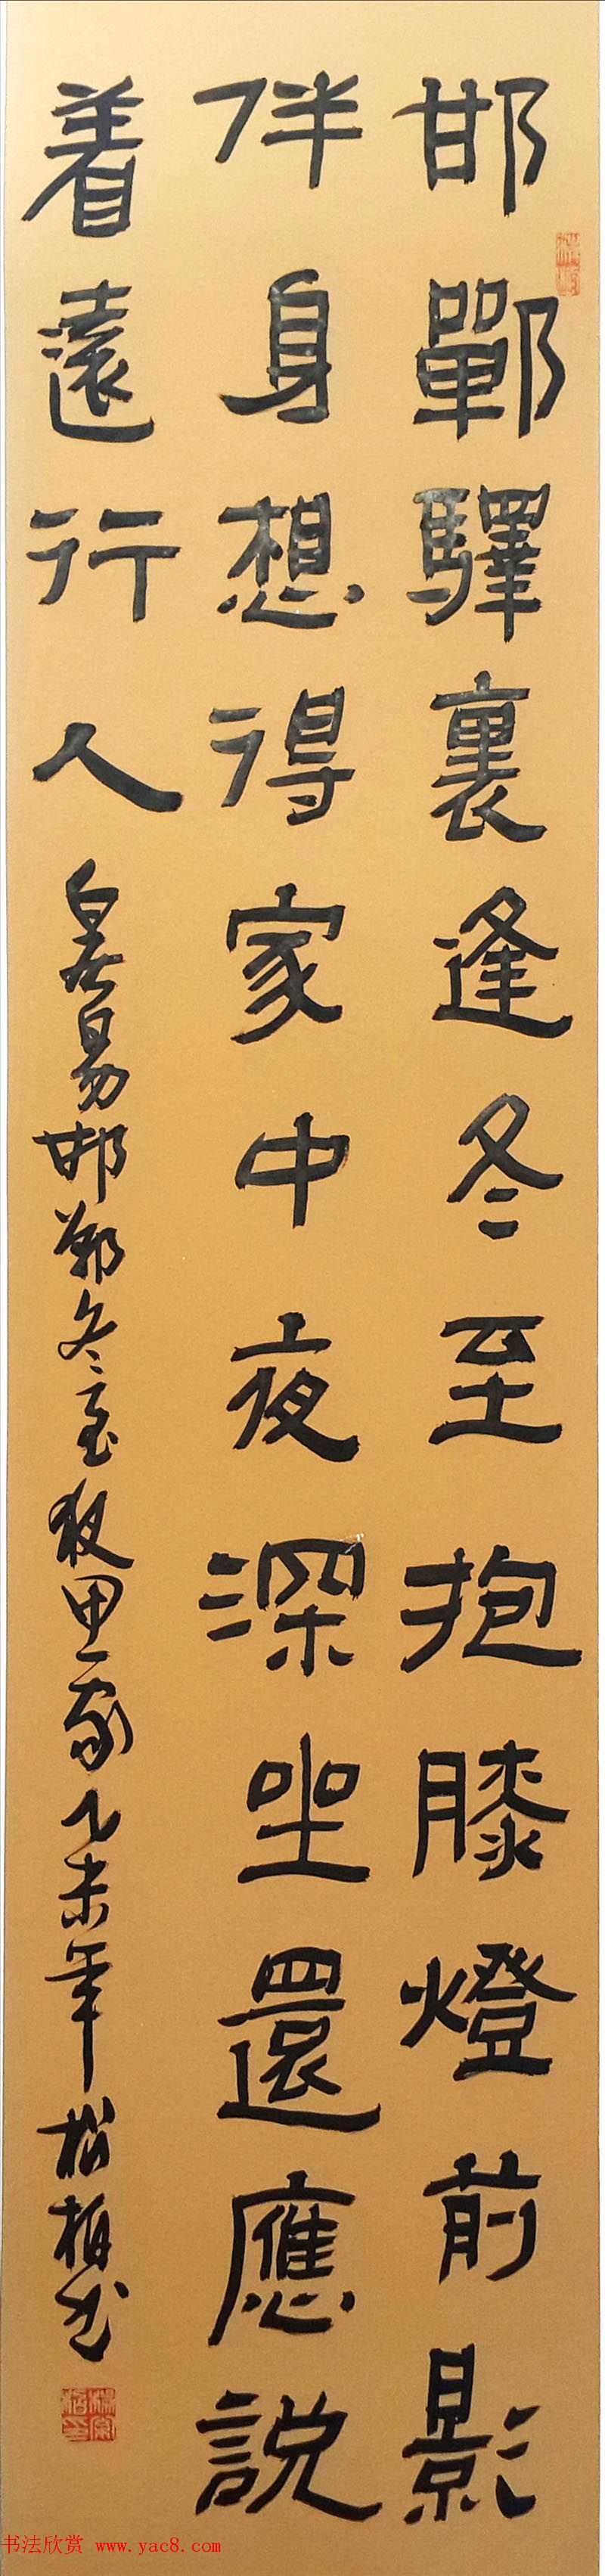 邯鄲驛裏逢冬至抱膝燈前影
伴身想得家中夜深坐還應説
着遠行人
白居易邯鄲冬至夜思家乙未年松柏書
书法欣赏 www.yac8.com